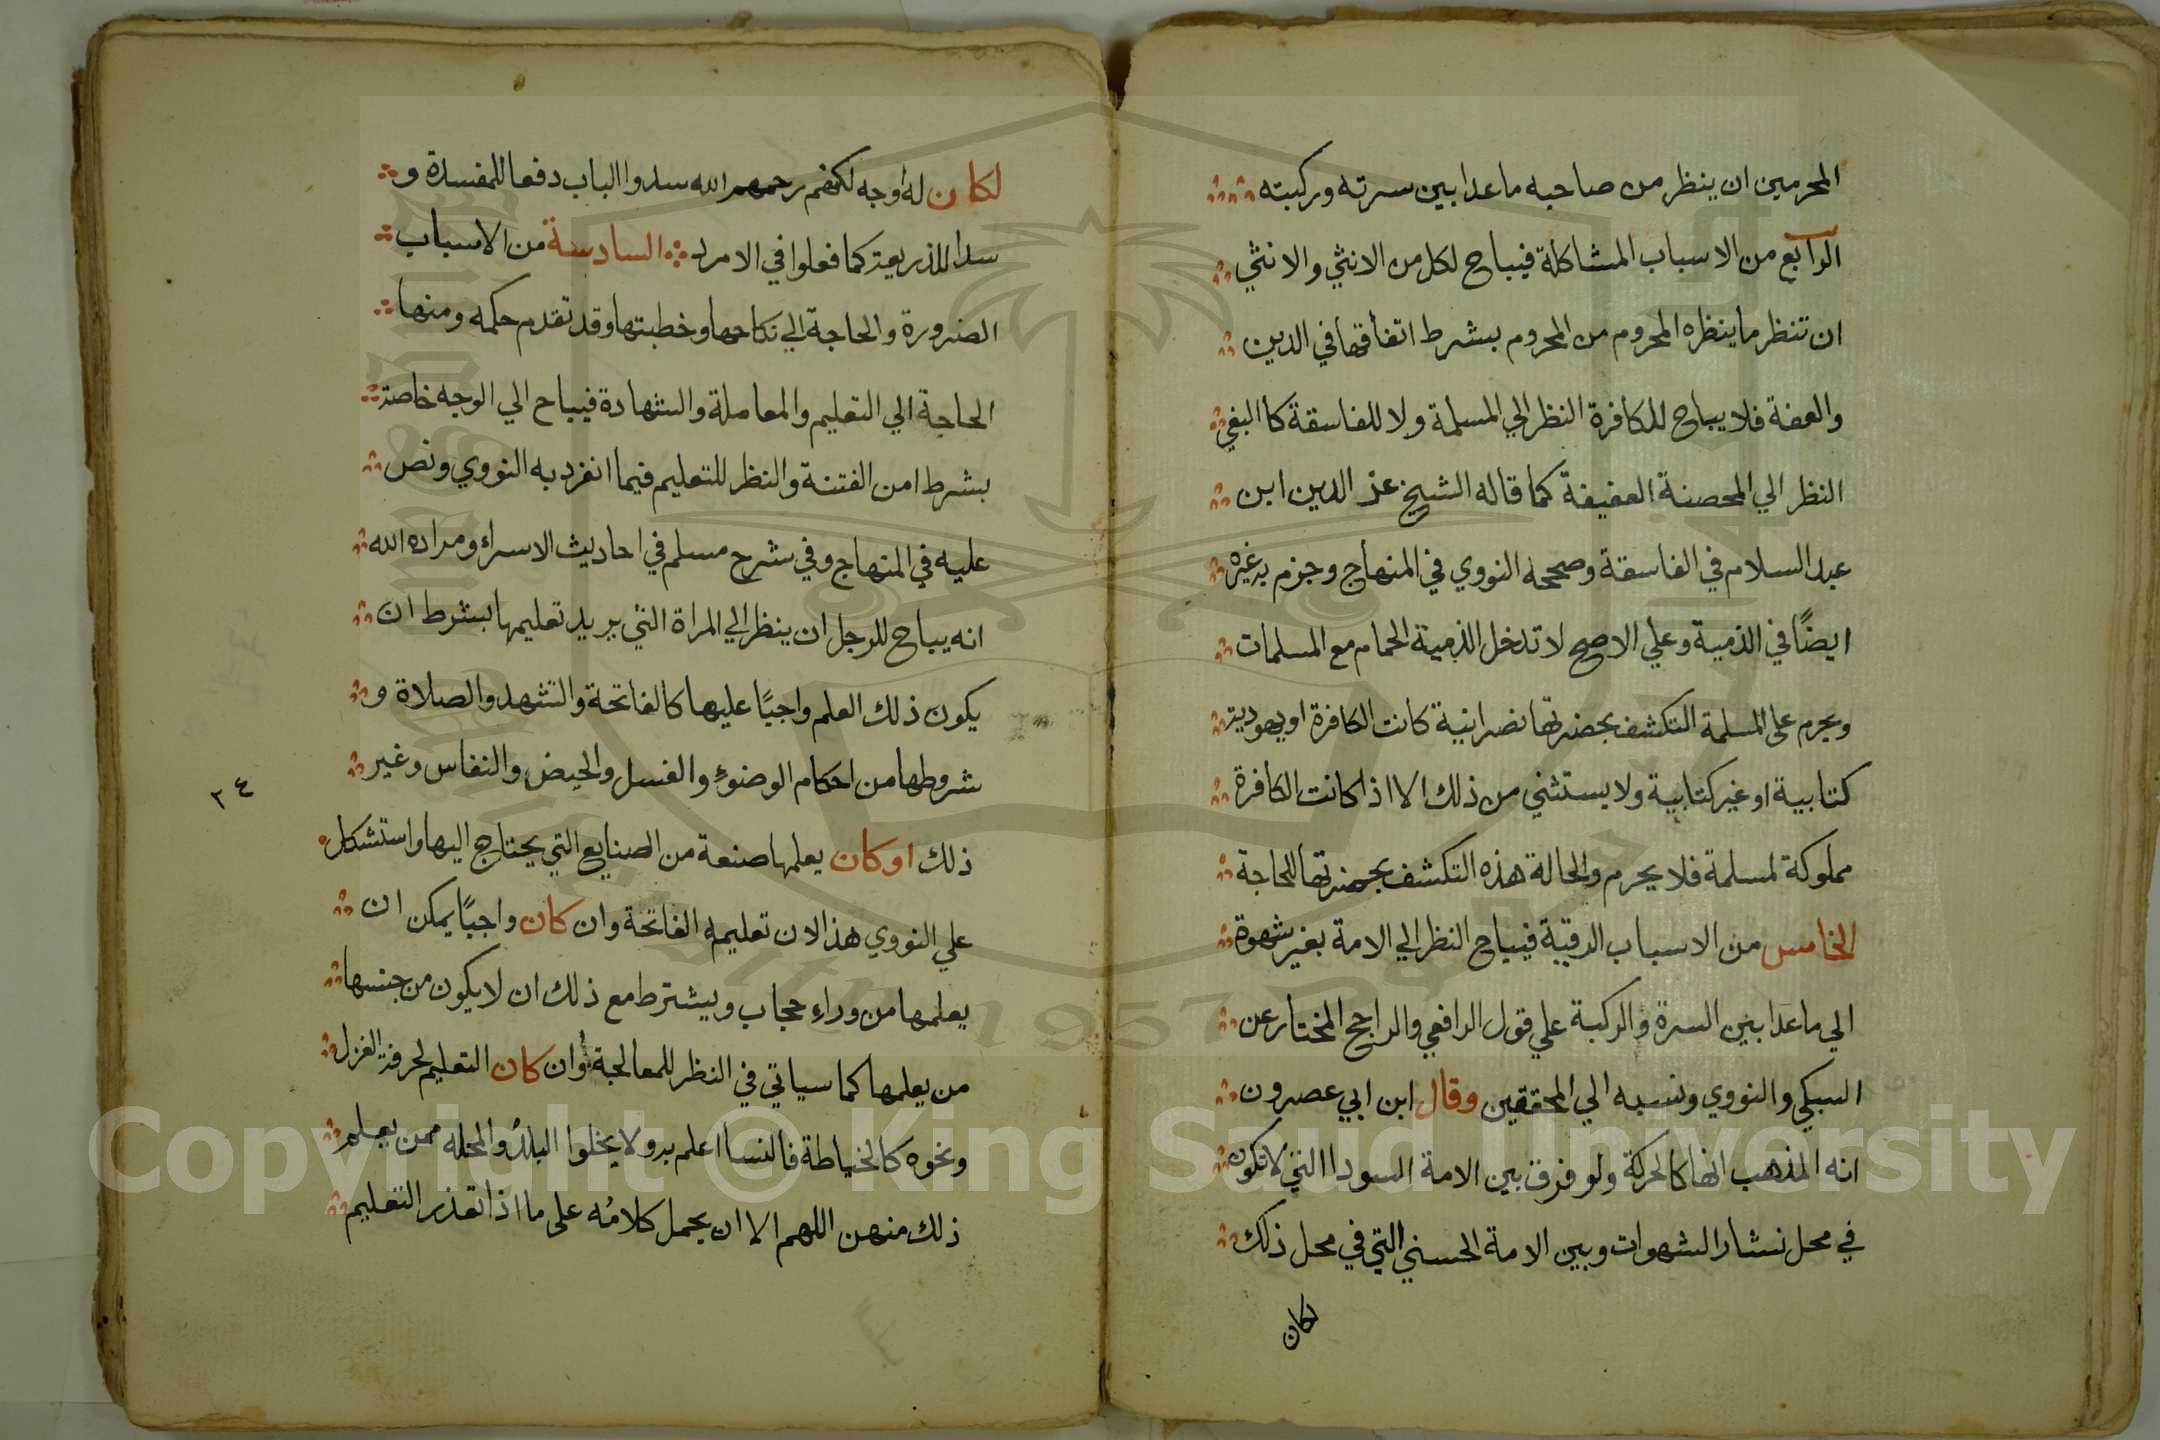 المحرمين ان ينظر من صاحبه ماعدا بين سرته وركبته
الرابع من الاسباب المشاكلة فيباح لكل من الانثي والانثي
ان تنظر ما ينظره المحروم من المحروم بشرط اتفاقها في الدين
والعفة فلا يباح للكافرة النظر الي المسلمة ولا للفاسقة كا البغي
النظر الي المحصنة العفيفة كما قاله الشيخ عز الدين ابن
عبد السلام في الفاسقة وصححه النووي في المنهاج وجزم به غيره
ايضًا في الذمية وعلي الاصح لا تدخل الذمية الحمام مع المسلمات
ويحرم على المسلمة التكشف بحضرتها نصرانية كانت الكافرة او يهودية
كتابية او غير كتابية ولا يستثني من ذلك الا اذا كانت الكافرة
مملوكة لمسلمة فلا يحرم والحالة هذه التكشف بحضرتها للحاجة
الخامس من الاسباب الرقية فيباح النظر الي الامة بغير شهوة
الي ماعدا بين السرة والركبة علي قول الرافعي والراجح المختار عن
السبكي والنووي ونسبه الي المحققين وقال ابن ابي عصرون
انه المذهب انها كالحركة ولو فرق بين الامة السودا التي لا تكون
في محل نشار الشهوات وبين الامة الحسني التي في محل ذلك
لكان
لكان له اوجه لكنهم رحمهم الله سدوا الباب دفعا للمفسدة و
سدا للذريعة كما فعلوا في الامرد السادسة من الاسباب
الضرورة والحاجة الي نكاحها وخطبتها وقد تقدم حكمه ومنها
الحاجة الي التعليم والمعاملة والشهادة فيباح الي الوجه خاصة
بشرط امن الفتنة والنظر للتعليم فيما انفرد به النووي ونص
عليه في المنهاج وفي شرح مسلم في احاديث الاسراء ومراده الله
انه يباح للرجل ان ينظر الي المراة التي يريد تعليمها بشرط ان
يكون ذلك العلم واجبًا عليها كالفاتحة والتشهد والصلاة و
شروطها من احكام الوضوء والغسل والحيض والنفاس وغير
٢٤
ذلك او كان يعلمها صنعة من الصنايع التي يحتاج اليها واستشكل
علي النووي هذا لان تعليمه الفاتحة وان كان واجبًا يمكن ان
يعلمها من وراء حجاب ويشترط مع ذلك ان لا يكون من جنسها
من يعلمها كما سياتي في النظر للمعالجة وان كان التعليم لحرفة الغزل
ونحوه كالخياطة فالنسا اعلم به ولا يخلوا البلد والمحله ممن يعلم
ذلك منهن اللهم الا ان يحمل كلامه على ما اذا تعذر التعليم
Copyright © King Saud University
1957